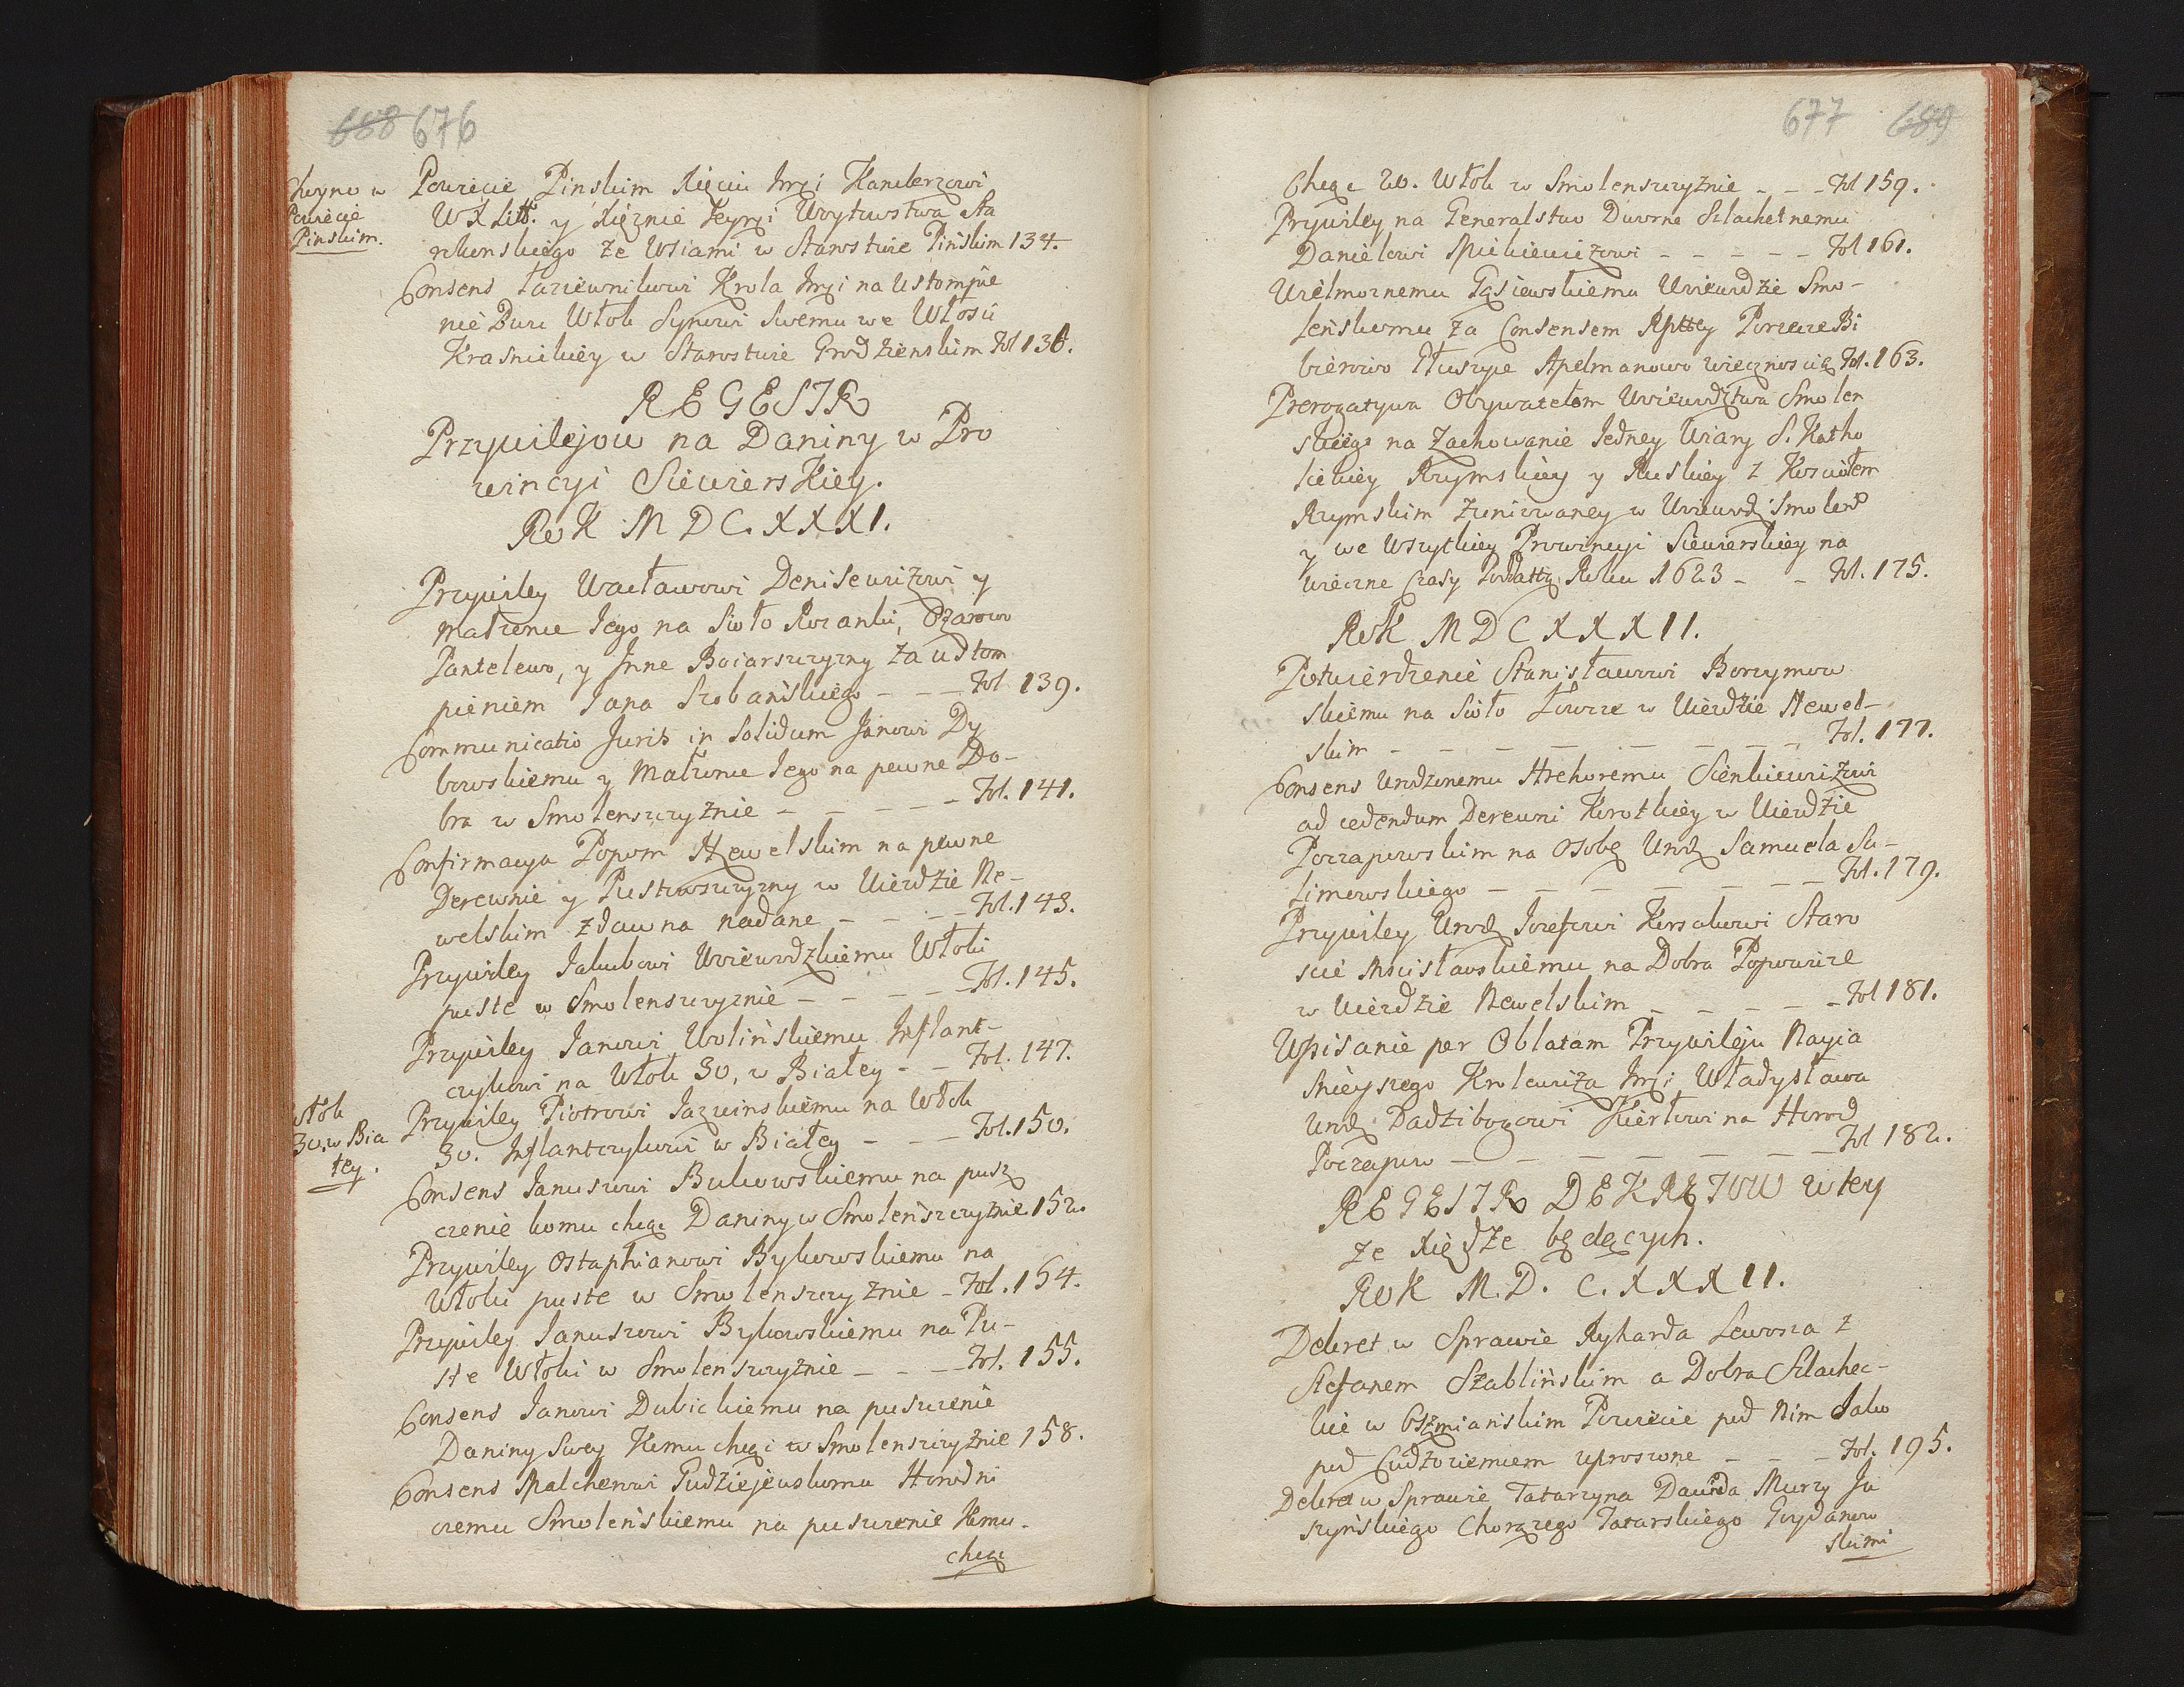 688 676
Powiecie Pinskim Xięciu Jmći Kanclerzowi
W X Litt. y Xięznie Jeymći Woytowstwa Sta
rzkonskiego ze Wsiami w Starostwie Pińskim 134.
w
Powiecie
Pinskim.
Consens Łaziewnikowi Krola Jmći na Ustompie
nie Dwu Włok Synowi Swemu we Włosci
Krasnickiey w Starostwie Grodzienskim Fol 136.
REGESTR
Przywilejow na Daniny w Pro
wincyi Siewierskiey.
Rok MDC.XXXI.
Przywiley Wacławowi Denisewiżowi y
Małżence Jego na Sioło Rozanki, Ożarowo
Pantelewo, y Jnne Boiarszczyzny za ustom
pieniem Jana Szobańskiego - - - Fol 139.
Communicatio Juris in Solidum Janowi Dy
bowskiemu y Małzonce Jego na pewne Do-
bra w Smolenszczyznie - - - - - Fol. 141.
Confirmacya Popom Newelskim na pewne
Derewnie y Pustowszczyzny w Uieździe Ne-
welskim zdawna nadane - - - - Fol. 143.
Przywiley Jakubowi Woiewodzkiemu Włoki
puste w Smolenszczyznie - - - - - Fol. 145.
Przywiley Janowi Wolińskiemu Jnflant-
czykowi na Włok 30, w Białey - - Fol. 147.
Przywiley Piotrowi Jazwinskiemu na Włok
30. Jnflantczykowi w Białey - - - Fol. 150.
Włok
30. w Bia
łey.
Consens Januszowi Bukowskiemu na pusz
czenie komu chcąc Daniny w Smoleńszczyznie 152.
Przywiley Ostaphianowi Bykowskiemu na
Włoki puste w Smolenszczyznie - Fol. 154.
Przywiley Januszowi Bykowskiemu na Pu-
ste Włoki w Smolenszczyznie - - - Fol. 155.
Consens Janowi Dubickiemu na puszczenie
Daniny Swey Komu chcąc w Smolenszczyznie 158.
Consens Malcherowi Gudziejewskomu Horodni
czemu Smoleńskiemu na puszczenie Komu.
chcąc
677 689
Chcąc 20. Włok w Smolenszczyznie - - - Fol 159.
Przywiley na Generalstwo Dworne Szlachetnemu
Danielowi Spickiewiczowi - - - - - Fol 161.
Wielmoznemu Gąsiewskiemu Woiewodzie Smo-
leńskomu za Consensem Rptty Porzecze Bi
bierowo Płuszcze Apelmanowo wiecznoscią Fol. 163.
Prerogatywa Obywatelom Woiewodztwa Smolen
skiego na Zachowanie Jedney Wiary S. Katho
lickiey Rzymskiey y Ruskiey z Kosciołem
Rzymskim Zuniowaney w Woiewodz: Smolens
y we Wszytkiey Prowincyi Siewierskiey na
wieczne Czasy Podatta Roku 1623 - - Fol. 175.
Rok MDCXXXII.
Potwierdzenie Stanisławowi Borzymow
skiemu na Sioło Łowcze w Uieździe Newel-
skim - - - - - - - - Fol. 177.
Consens Urodzonemu Hrehoremu Sienkiewiżowi
ad cedendum Derewni Korotkiey w Uieździe
Poczapowskim na Osobę Urodz Samuela Su-
limowskiego - - - - - - - Fol. 179.
Przywiley Urodz Jozefowi Korsakowi Staro
scie Mscisławskiemu na Dobra Popowicze
w Uieździe Newelskim - - - - - Fol 181.
Wpisanie per Oblatam Przywileju Nayja
snieyszego Krolewiża Jmći Władysława
Urodz Dadzibogowi Kierłowi na Horod
Poczapow - - - - - - - Fol 182.
REGESTR DEKRETOW w tey
ze Xiędze będących.
Rok M.D.C.XXXII.
Dekret w Sprawie Rykarda Lewosza z
Stefanem Szablińskim o Dobra Szlachec-
kie w Oszmiańskim Powiecie pod Nim Jako
pod Cudzoziemiem uproszone - - - Fol. 195.
Dekret w Sprawie Tatarzyna Dawida Murzy Ju
szyńskiego Chorązego Tatarskiego Gryďanow
skimi